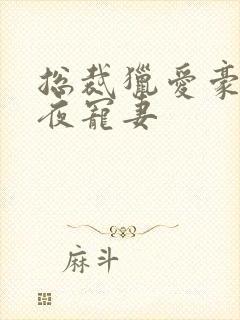 总裁獵爱豪
夜寵妻
麻斗